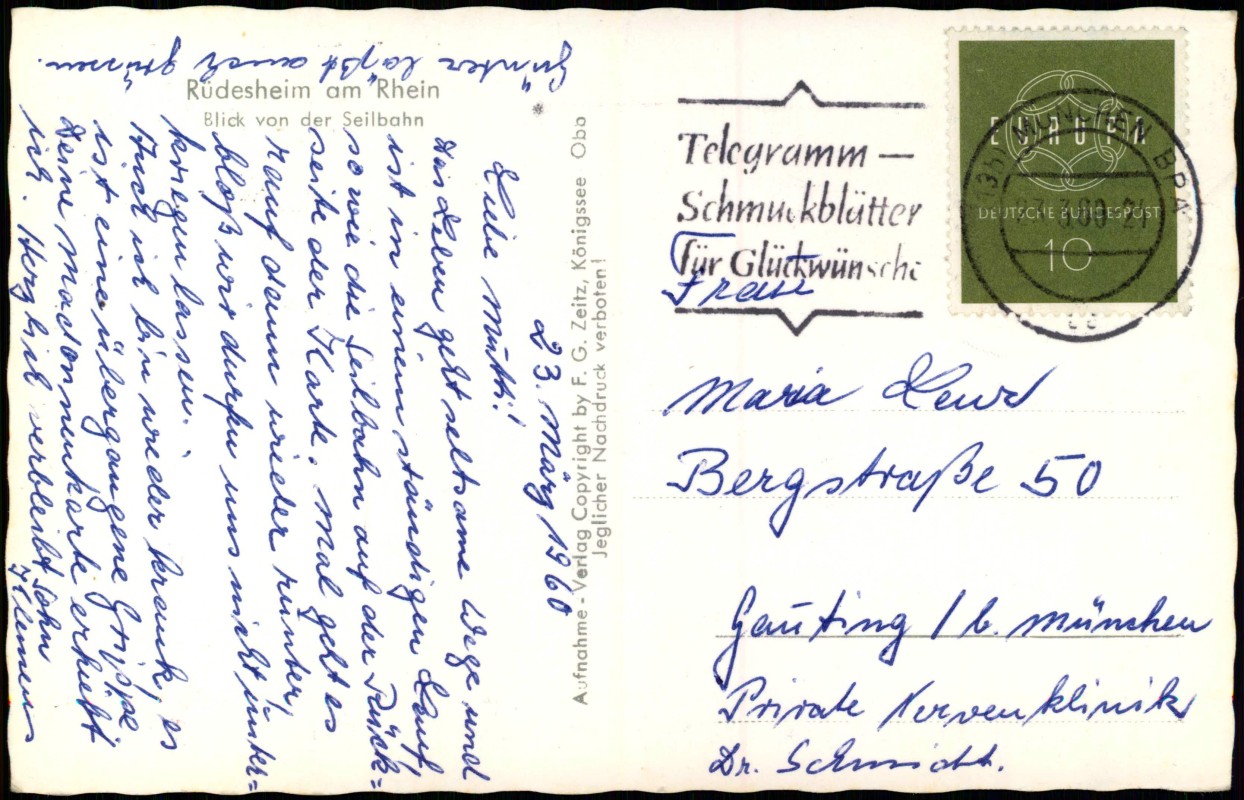 Rüdesheim am Rhein
Blick von der Seilbahn
23. März 1960
Liebe Mutti!
Das Leben geht seltsame Wege und
ist in einem ständigen Lauf,
so wie die Seilbahn auf der Rück=
seite der Karte. Mal geht es
rauf dann wieder runter,
bloß wir dürfen uns nicht unter=
kriegen lassen.
Auch ich bin wieder krank, es
ist eine übergangene Grippe.
Deine Madonnenkarte erhielt
ich. Herzlich verbleibt Sohn
Klemens
Günter laßt auch grüssen.
Aufnahme - Verlag Copyright by F. G. Zeitz, Königssee Obb
Jeglicher Nachdruck verboten!
Telegramm —
Schmuckblätter
für Glückwünsche
EUROPA
DEUTSCHE BUNDESPOST
10
MÜNCHEN BPA
Frau
Maria
Bergstraße 50
Gauting / b. München
Private Nervenklinik
Dr. Schmidt.